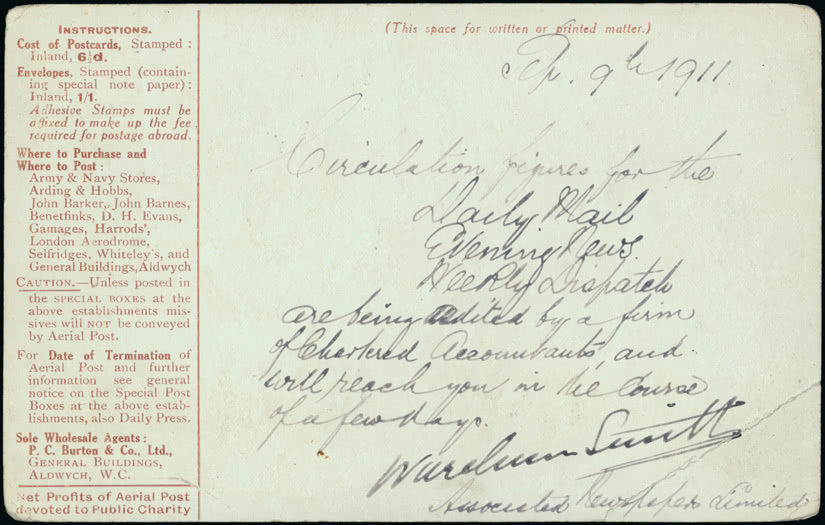 INSTRUCTIONS.
Cost of Postcards, Stamped :
Inland, 6½d.
Envelopes, Stamped (contain-
ing special note paper) :
Inland, 1/1.
Adhesive Stamps must be
affixed to make up the fee
required for postage abroad.
Where to Purchase and
Where to Post :
Army & Navy Stores,
Arding & Hobbs,
John Barker, John Barnes,
Benetfinks, D. H. Evans,
Gamages, Harrods',
London Aerodrome,
Selfridges, Whiteley's, and
General Buildings, Aldwych
CAUTION.—Unless posted in
the SPECIAL BOXES at the
above establishments mis-
sives will NOT be conveyed
by Aerial Post.
For Date of Termination of
Aerial Post and further
information see general
notice on the Special Post
Boxes at the above estab-
lishments, also Daily Press.
Sole Wholesale Agents :
P. C. Burton & Co., Ltd.,
GENERAL BUILDINGS,
ALDWYCH, W.C.
Net Profits of Aerial Post
devoted to Public Charity
(This space for written or printed matter.)
9th 1911
Circulation figures for the
Daily Mail
Evening News.
Weekly Dispatch
are being audited by a firm
of Chartered Accountants, and
will reach you in the course
of a few days.
Wareham Smith
Associated Newspapers Limited